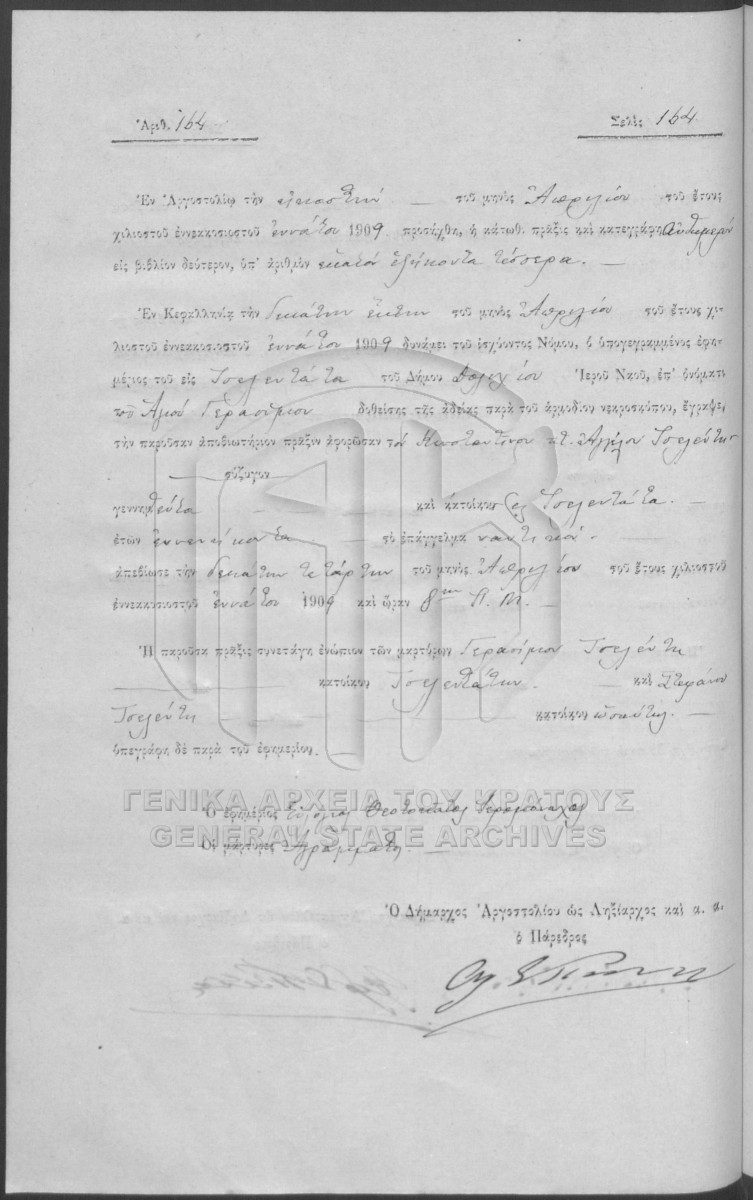 Ἀριθ. 164
Σελὶς 164
Ἐν Ἀργοστολίῳ τὴν εἰκοστὴν τοῦ μηνὸς Ἀπριλίου τοῦ ἔτους
χιλιοστοῦ ἐννεακοσιοστοῦ ἐννάτου 1909 προσήχθη, ἡ κάτωθ. πρᾶξις καὶ κατεγράφη αὐθημερόν
εἰς βιβλίον δεύτερον, ὑπ' ἀριθμὸν ἑκατὸν ἑξήκοντα τέσσερα. —
Ἐν Κεφαλληνίᾳ τὴν δεκάτην ἕκτην τοῦ μηνὸς Ἀπριλίου τοῦ ἔτους χι-
λιοστοῦ ἐννεακοσιοστοῦ ἐννάτου 1909 δυνάμει τοῦ ἰσχύοντος Νόμου, ὁ ὑπογεγραμμένος ἐφη-
μέριος τοῦ εἰς Τσελεντάτα τοῦ Δήμου Δουλιχίου Ἱεροῦ Ναοῦ, ἐπ' ὀνόματι
τοῦ Ἁγίου Γερασίμου δοθείσης τῆς ἀδείας παρὰ τοῦ ἁρμοδίου νεκροσκόπου, ἔγραψε,
τὴν παροῦσαν ἀποβιωτήριον πρᾶξιν ἀφορῶσαν τὸν Κωσταντῖνον Τσελέντην
— σύζυγον
γεννηθέντα — καὶ κάτοικον Τσελεντάτα. —
ἐτῶν ἐννενήκοντα — τὸ ἐπάγγελμα ναυτικόν. —
ἀπεβίωσε τὴν δεκάτην τετάρτην τοῦ μηνὸς Ἀπριλίου τοῦ ἔτους χιλιοστοῦ
ἐννεακοσιοστοῦ ἐννάτου 1909 καὶ ὥραν 8ην Π. Μ. —
Ἡ παροῦσα πρᾶξις συνετάγη ἐνώπιον τῶν μαρτύρων Γερασίμου Τσελέντη
— κατοίκου Τσελεντάτων. — καὶ Στεφάνου
Τσελέντη — κατοίκου ὡσαύτως. —
ὑπεγράφη δὲ παρὰ τοῦ ἐφημερίου. —
Ὁ ἐφημέριος Θεοτοκάτος Ἱερομόναχος
Οἱ μάρτυρες Ἀγράμματοι. —
ΓΕΝΙΚΑ ΑΡΧΕΙΑ ΤΟΥ ΚΡΑΤΟΥΣ
GENERAL STATE ARCHIVES
Ὁ Δήμαρχος Ἀργοστολίου ὡς Ληξίαρχος καὶ α. α.
ὁ Πάρεδρος